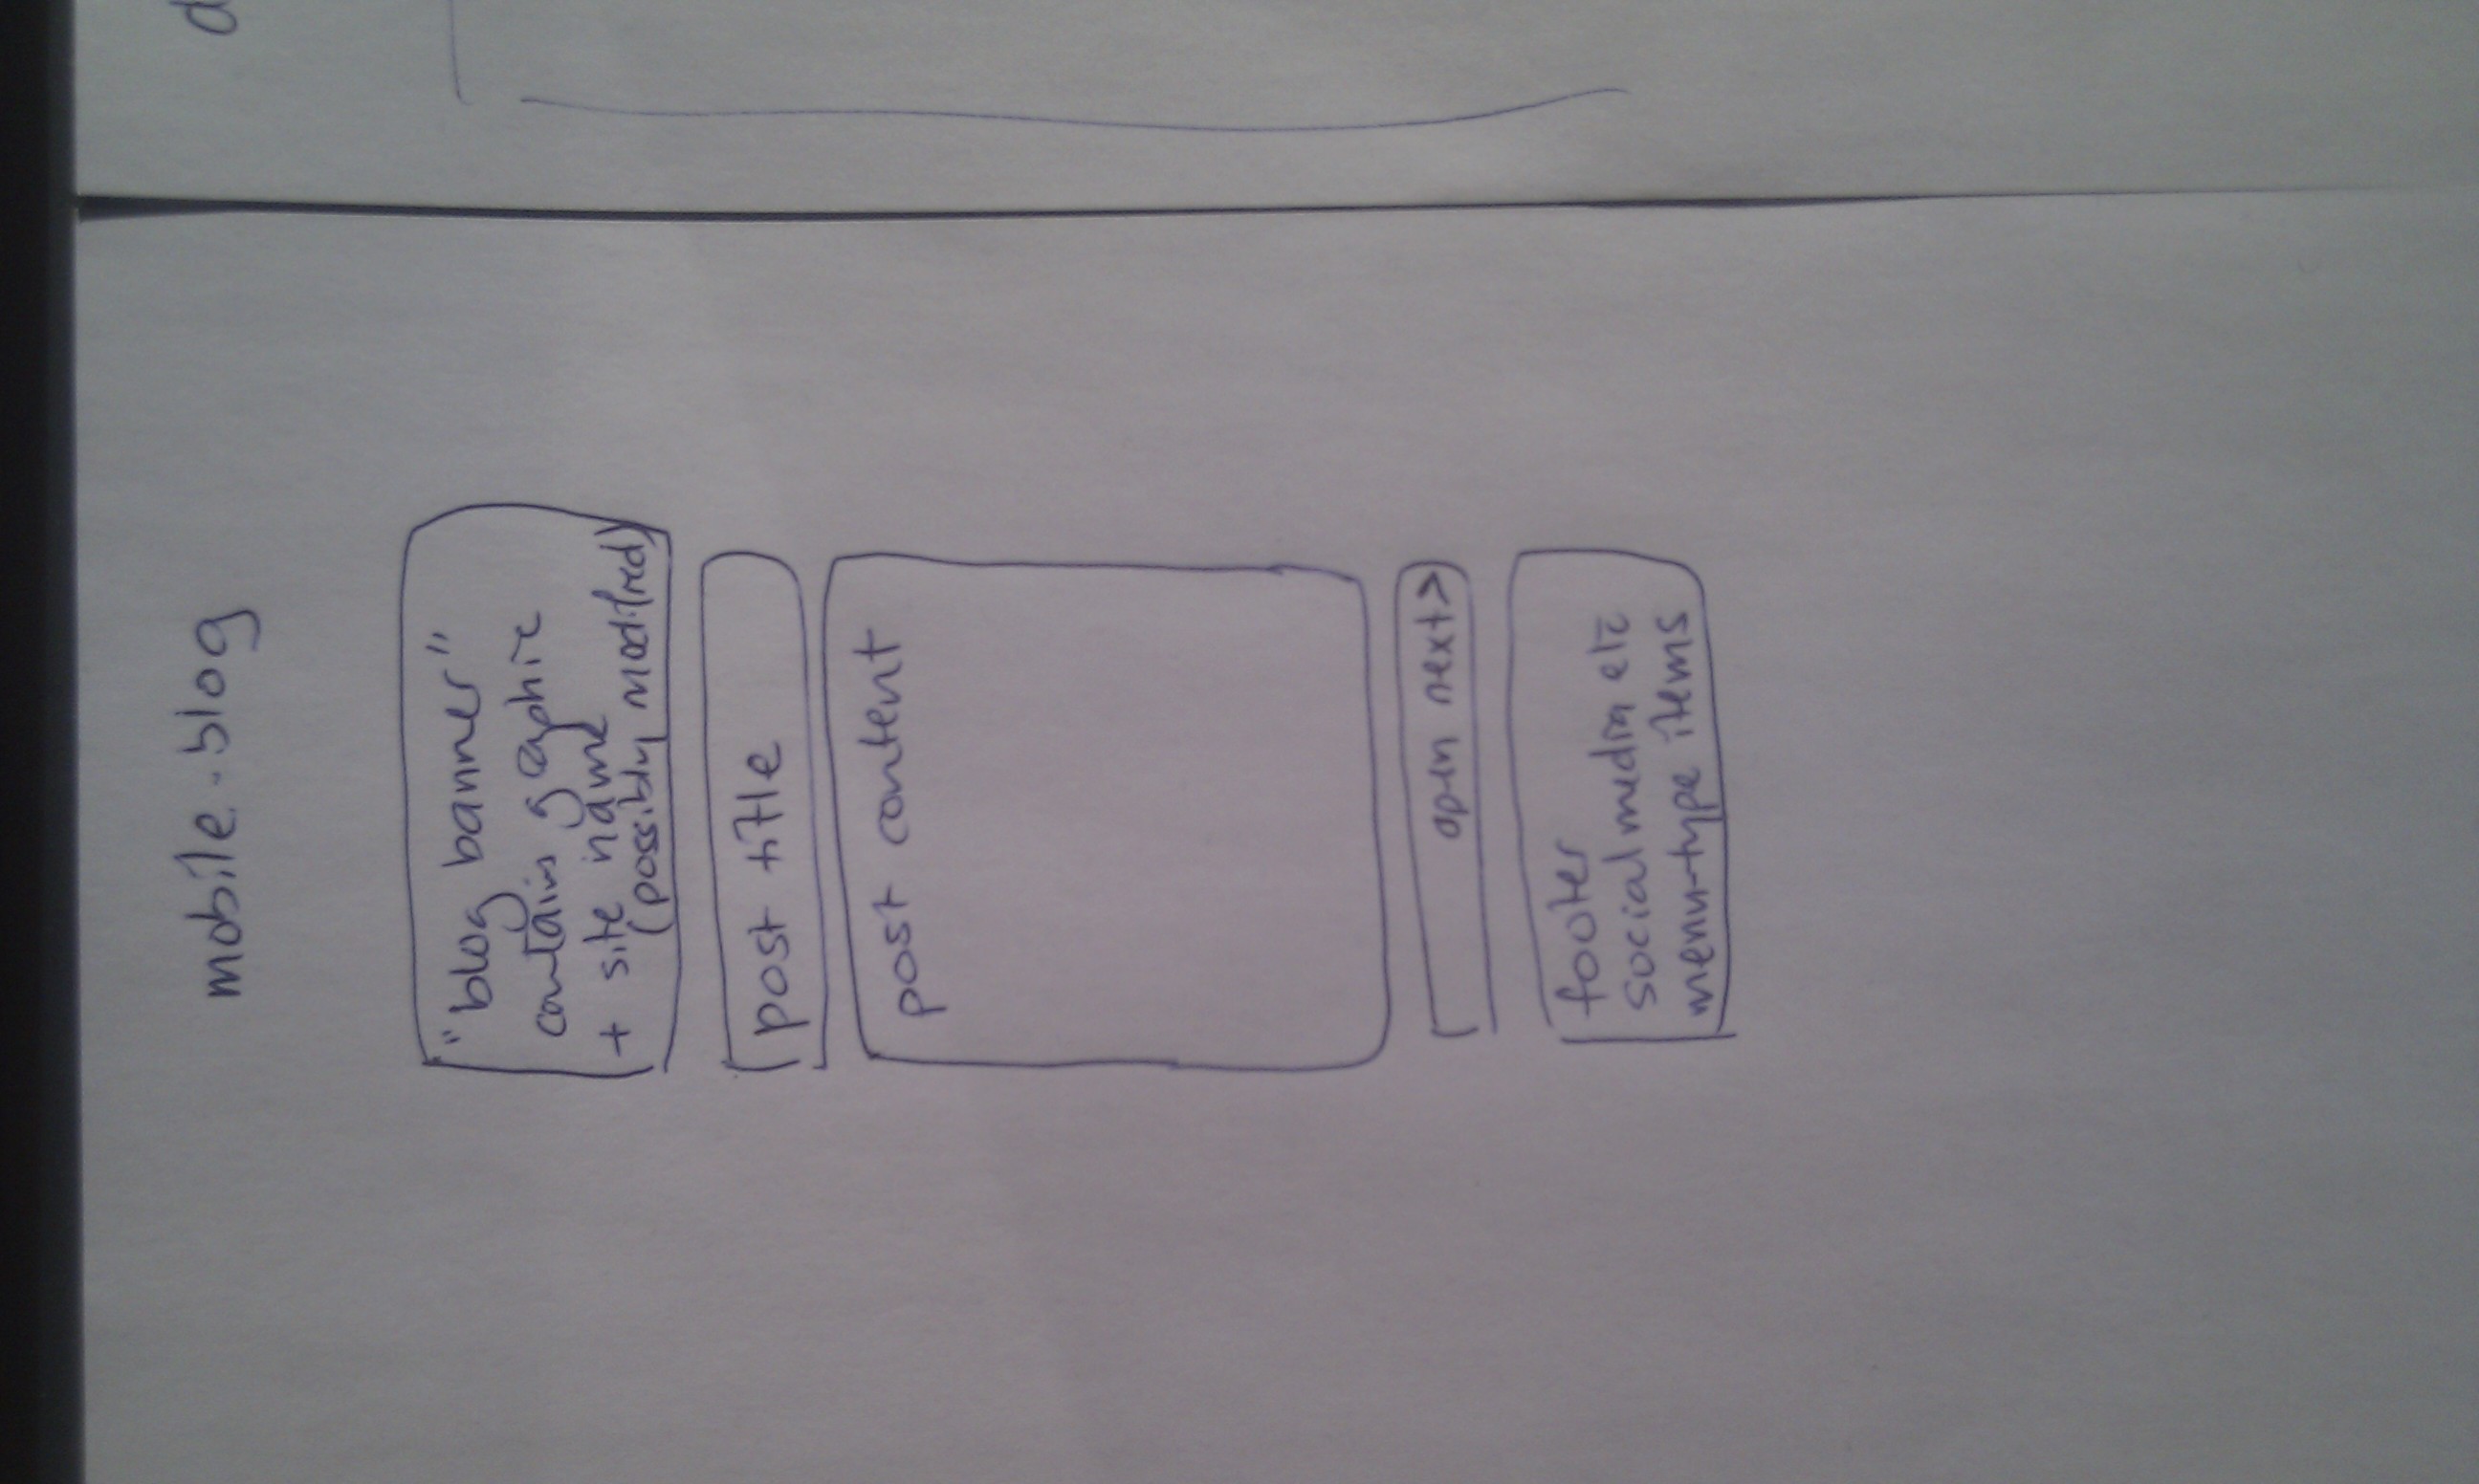 mobile - blog
"blog banner"
contains graphic
+ site name
(possibly modified)
post title
post content
open next >
footer
social media etc
menu-type items
d